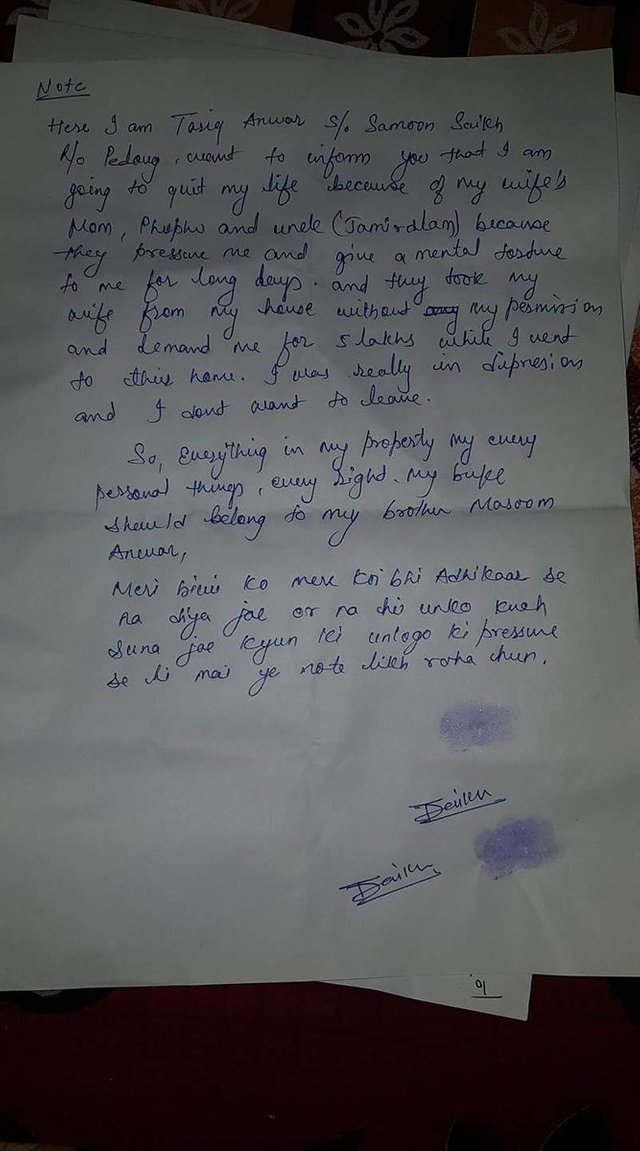 Note
Here I am Tasiq Anwar S/o Samoon Saikh
R/o Pedong, want to inform you that I am
going to quit my life because of my wife's
Mom, Phuphu and uncle (Jamirdlam) because
they pressure me and give a mental torture
to me for long days. and they took my
wife from my house without my permission
and demand me for 5 lakhs while I went
to this home. I was really in Dipresion
and I dont want to leave.
So, Everything in my property my every
personal things, every right. my
should belong to my brother Masoom
Anwar,
Meri biwi ko mere koi bhi Adhikaar se
na diya jae or na hi unko kuch
suna jae kyun ki unlogo ki pressure
se hi mai ye note likh raha hun.
Saikh
Saikh